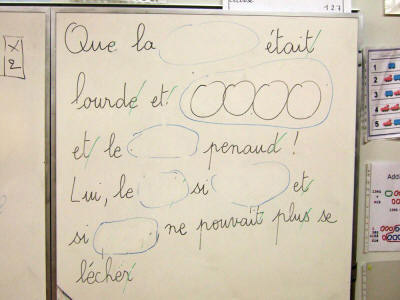 127
x
2
Que la était
lourde et
et le penaud !
Lui, le si et
si ne pouvait plus se
lécher
1
2
3
4
5
Addi